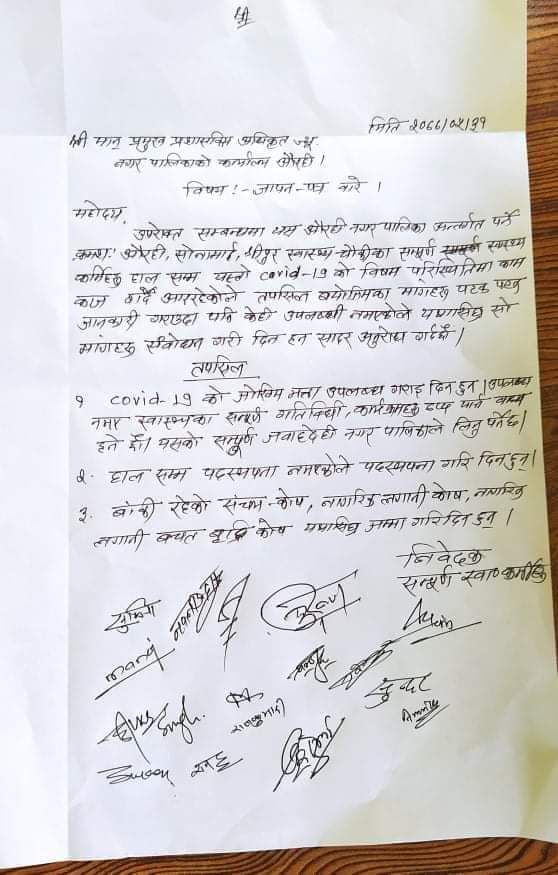 श्री
मिति २०७७/०५/३१
श्री मान् प्रमुख प्रशासकिय अधिकृत ज्यू
नगर पालिकाको कार्यालय औरही ।
विषय :- ज्ञापन-पत्र बारे ।
महोदय,
उपरोक्त सम्बन्धमा यस औरही नगर पालिका अन्तर्गत पर्ने
क्रमशः औरही, सोनामाई, श्रीपुर स्वास्थ्य चौकीका सम्पूर्ण स्वास्थ्य
कर्मिहरु हाल सम्म यस्तो covid-19 को विषम परिस्थितिमा काम
काज गर्दै आइरहेकोले तपसिल बमोजिमका मांगहरु पटक पटक
जानकारी गराउदा पनि केही उपलब्धी नभएकोले यथासिघ्र सो
मांगहरु संबोधन गरी दिन हुन सादर अनुरोध गर्दछौं ।
तपसिल
१ covid-19 को जोखिम भत्ता उपलब्ध गराइ दिन हुन । उपलब्ध
नभए स्वास्थ्यका सम्पूर्ण गतिविधी, कार्यक्रमहरु ठप्प पार्न बाध्य
हुने छौं । यसको सम्पूर्ण जवाफदेही नगर पालिकाले लिनु पर्नेछ ।
२. हाल सम्म पदस्थापना नभएकोले पदस्थापना गरि दिन हुन ।
३. बांकी रहेको संचय-कोष, नागरिक लगानी कोष, नागरिक
लगानी बचत बृद्धि कोष यथासिघ्र जम्मा गरि दिन हुन ।
निवेदक
सम्पूर्ण स्वा० कर्मीहरु
manoj
राजकुमारी